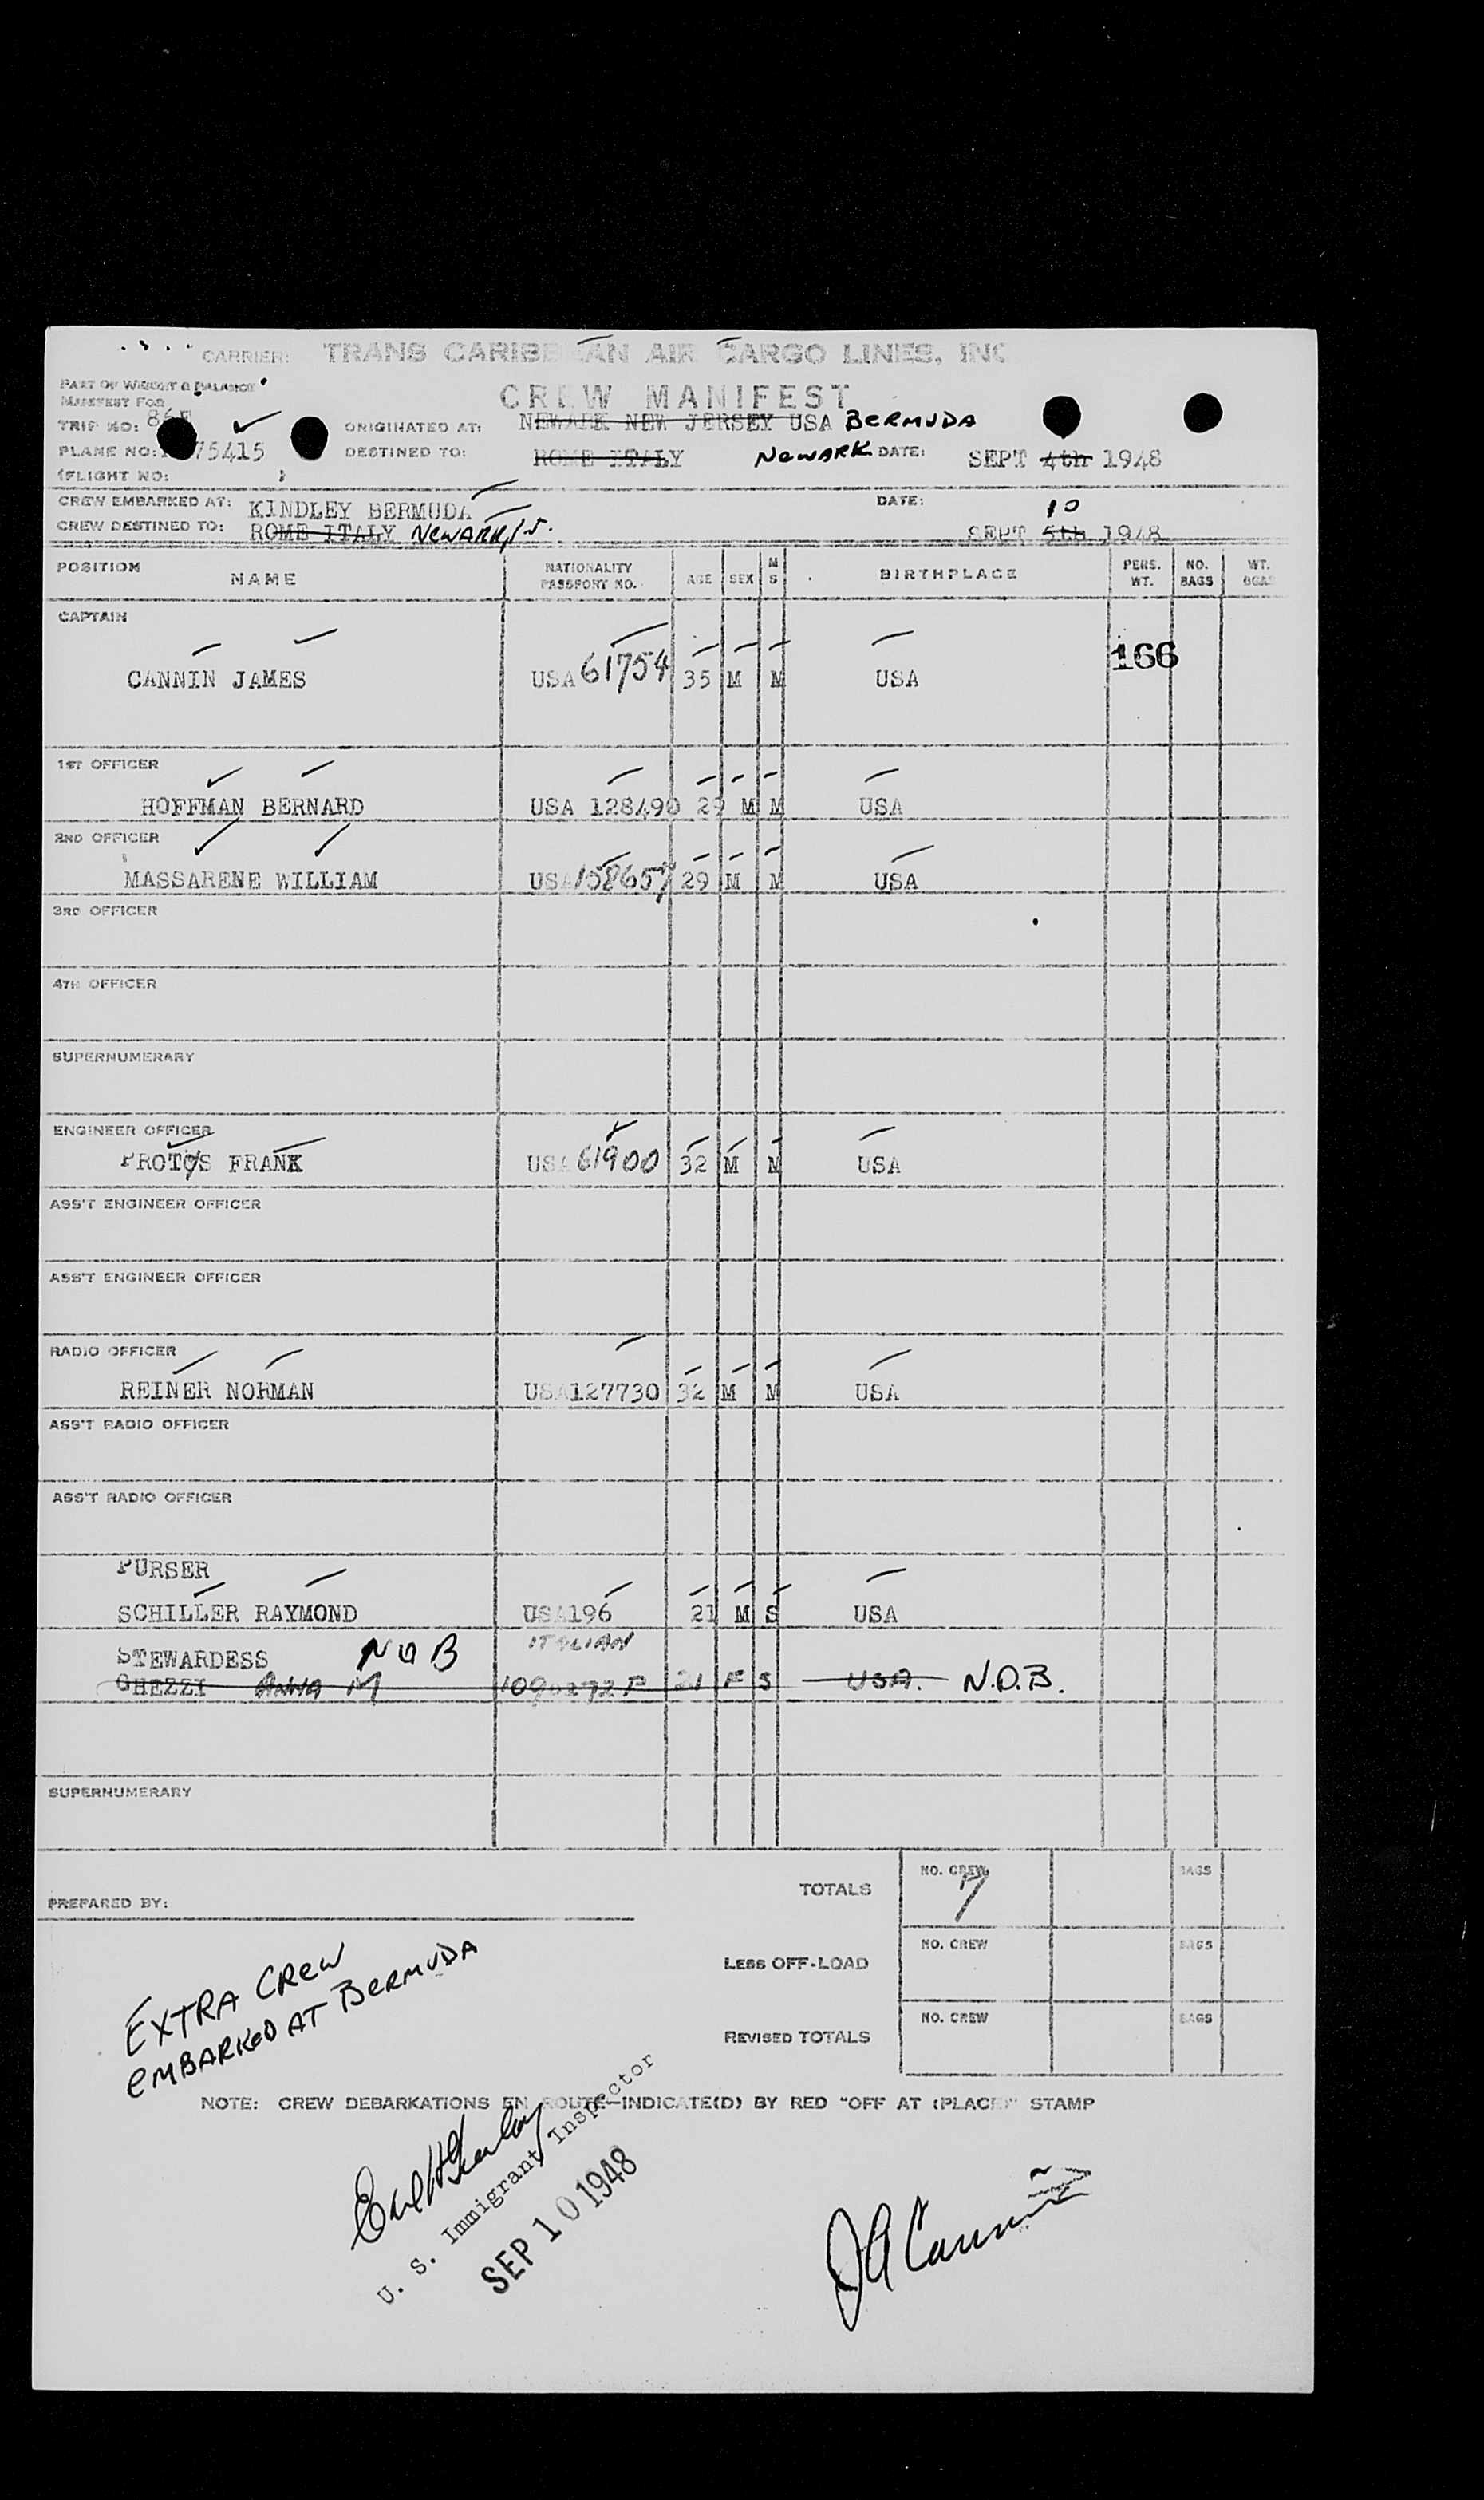 CARRIER: TRANS CARIBBEAN AIR CARGO LINES, INC
PART OF WEIGHT & BALANCE
MANIFEST FOR
CREW MANIFEST
TRIP NO:
ORIGINATED AT: NEWARK NEW JERSEY USA BERMUDA
PLANE NO: 75415
DESTINED TO: ROME ITALY NEWARK DATE: SEPT 4th 1948
(FLIGHT NO: )
CREW EMBARKED AT: KINDLEY BERMUDA DATE: 10
CREW DESTINED TO: ROME ITALY NEWARK, SEPT 5th 1948
POSITION NAME NATIONALITY PASSPORT NO. AGE SEX M S BIRTHPLACE PERS. WT. NO. BAGS WT.
CAPTAIN
CANNIN JAMES USA 61754 35 M M USA 166
1ST OFFICER
HOFFMAN BERNARD USA 128490 29 M M USA
2ND OFFICER
MASSARENE WILLIAM USA 158657 29 M M USA
3RD OFFICER
4TH OFFICER
SUPERNUMERARY
ENGINEER OFFICER
FRANK USA 61900 32 M M USA
ASS'T ENGINEER OFFICER
ASS'T ENGINEER OFFICER
RADIO OFFICER
REINER NORMAN USA127730 32 M M USA
ASS'T RADIO OFFICER
ASS'T RADIO OFFICER
PURSER
SCHILLER RAYMOND USA196 21 M S USA
STEWARDESS NOB ITALIAN
GHEZZI M 21 F S USA. N.O.B.
SUPERNUMERARY
PREPARED BY:
TOTALS NO. CREW 7 BAGS
LESS OFF-LOAD NO. CREW BAGS
REVISED TOTALS NO. CREW BAGS
EXTRA CREW
EMBARKED AT BERMUDA
NOTE: CREW DEBARKATIONS EN ROUTE—INDICATE(D) BY RED "OFF AT (PLACE)" STAMP
U. S. Immigrant Inspector
SEP 10 1948
JA Cannin